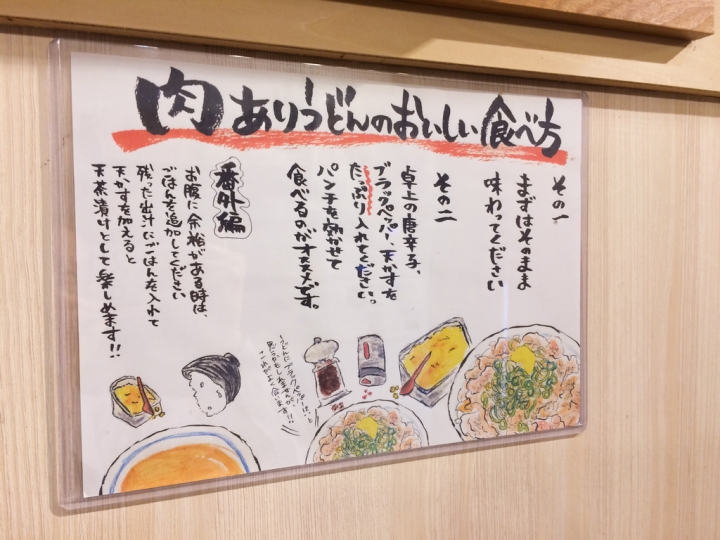 肉ありうどんのおいしい食べ方
その一
まずはそのまま
味わってください
その二
卓上の唐辛子、
ブラックペッパー、天かすを
たっぷり入れてください。
パンチを効かせて
食べるのがオススメです。
番外編
お腹に余裕がある時は、
ごはんを追加してください
残った出汁にごはんを入れて
天かすを加えると
天茶漬けとして楽しめます!!
うどんにブラックペッパーは…と
思うかもしれませんが、
これがよく合います!!